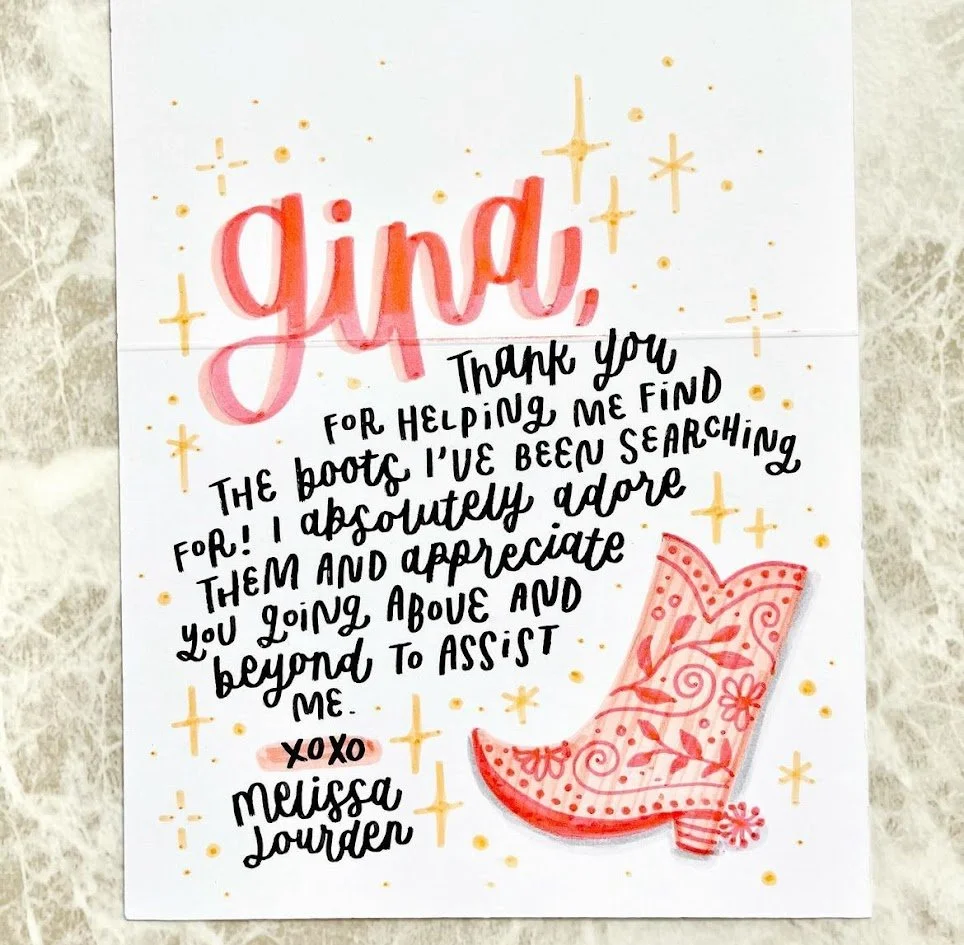 gina,
Thank you
FOR HELPING ME FIND
THE boots I'VE BEEN SEARCHING
FOR! I absolutely adore
THEM AND appreciate
you going ABOVE AND
beyond TO ASSIST
ME.
XOXO
Melissa
Lourden